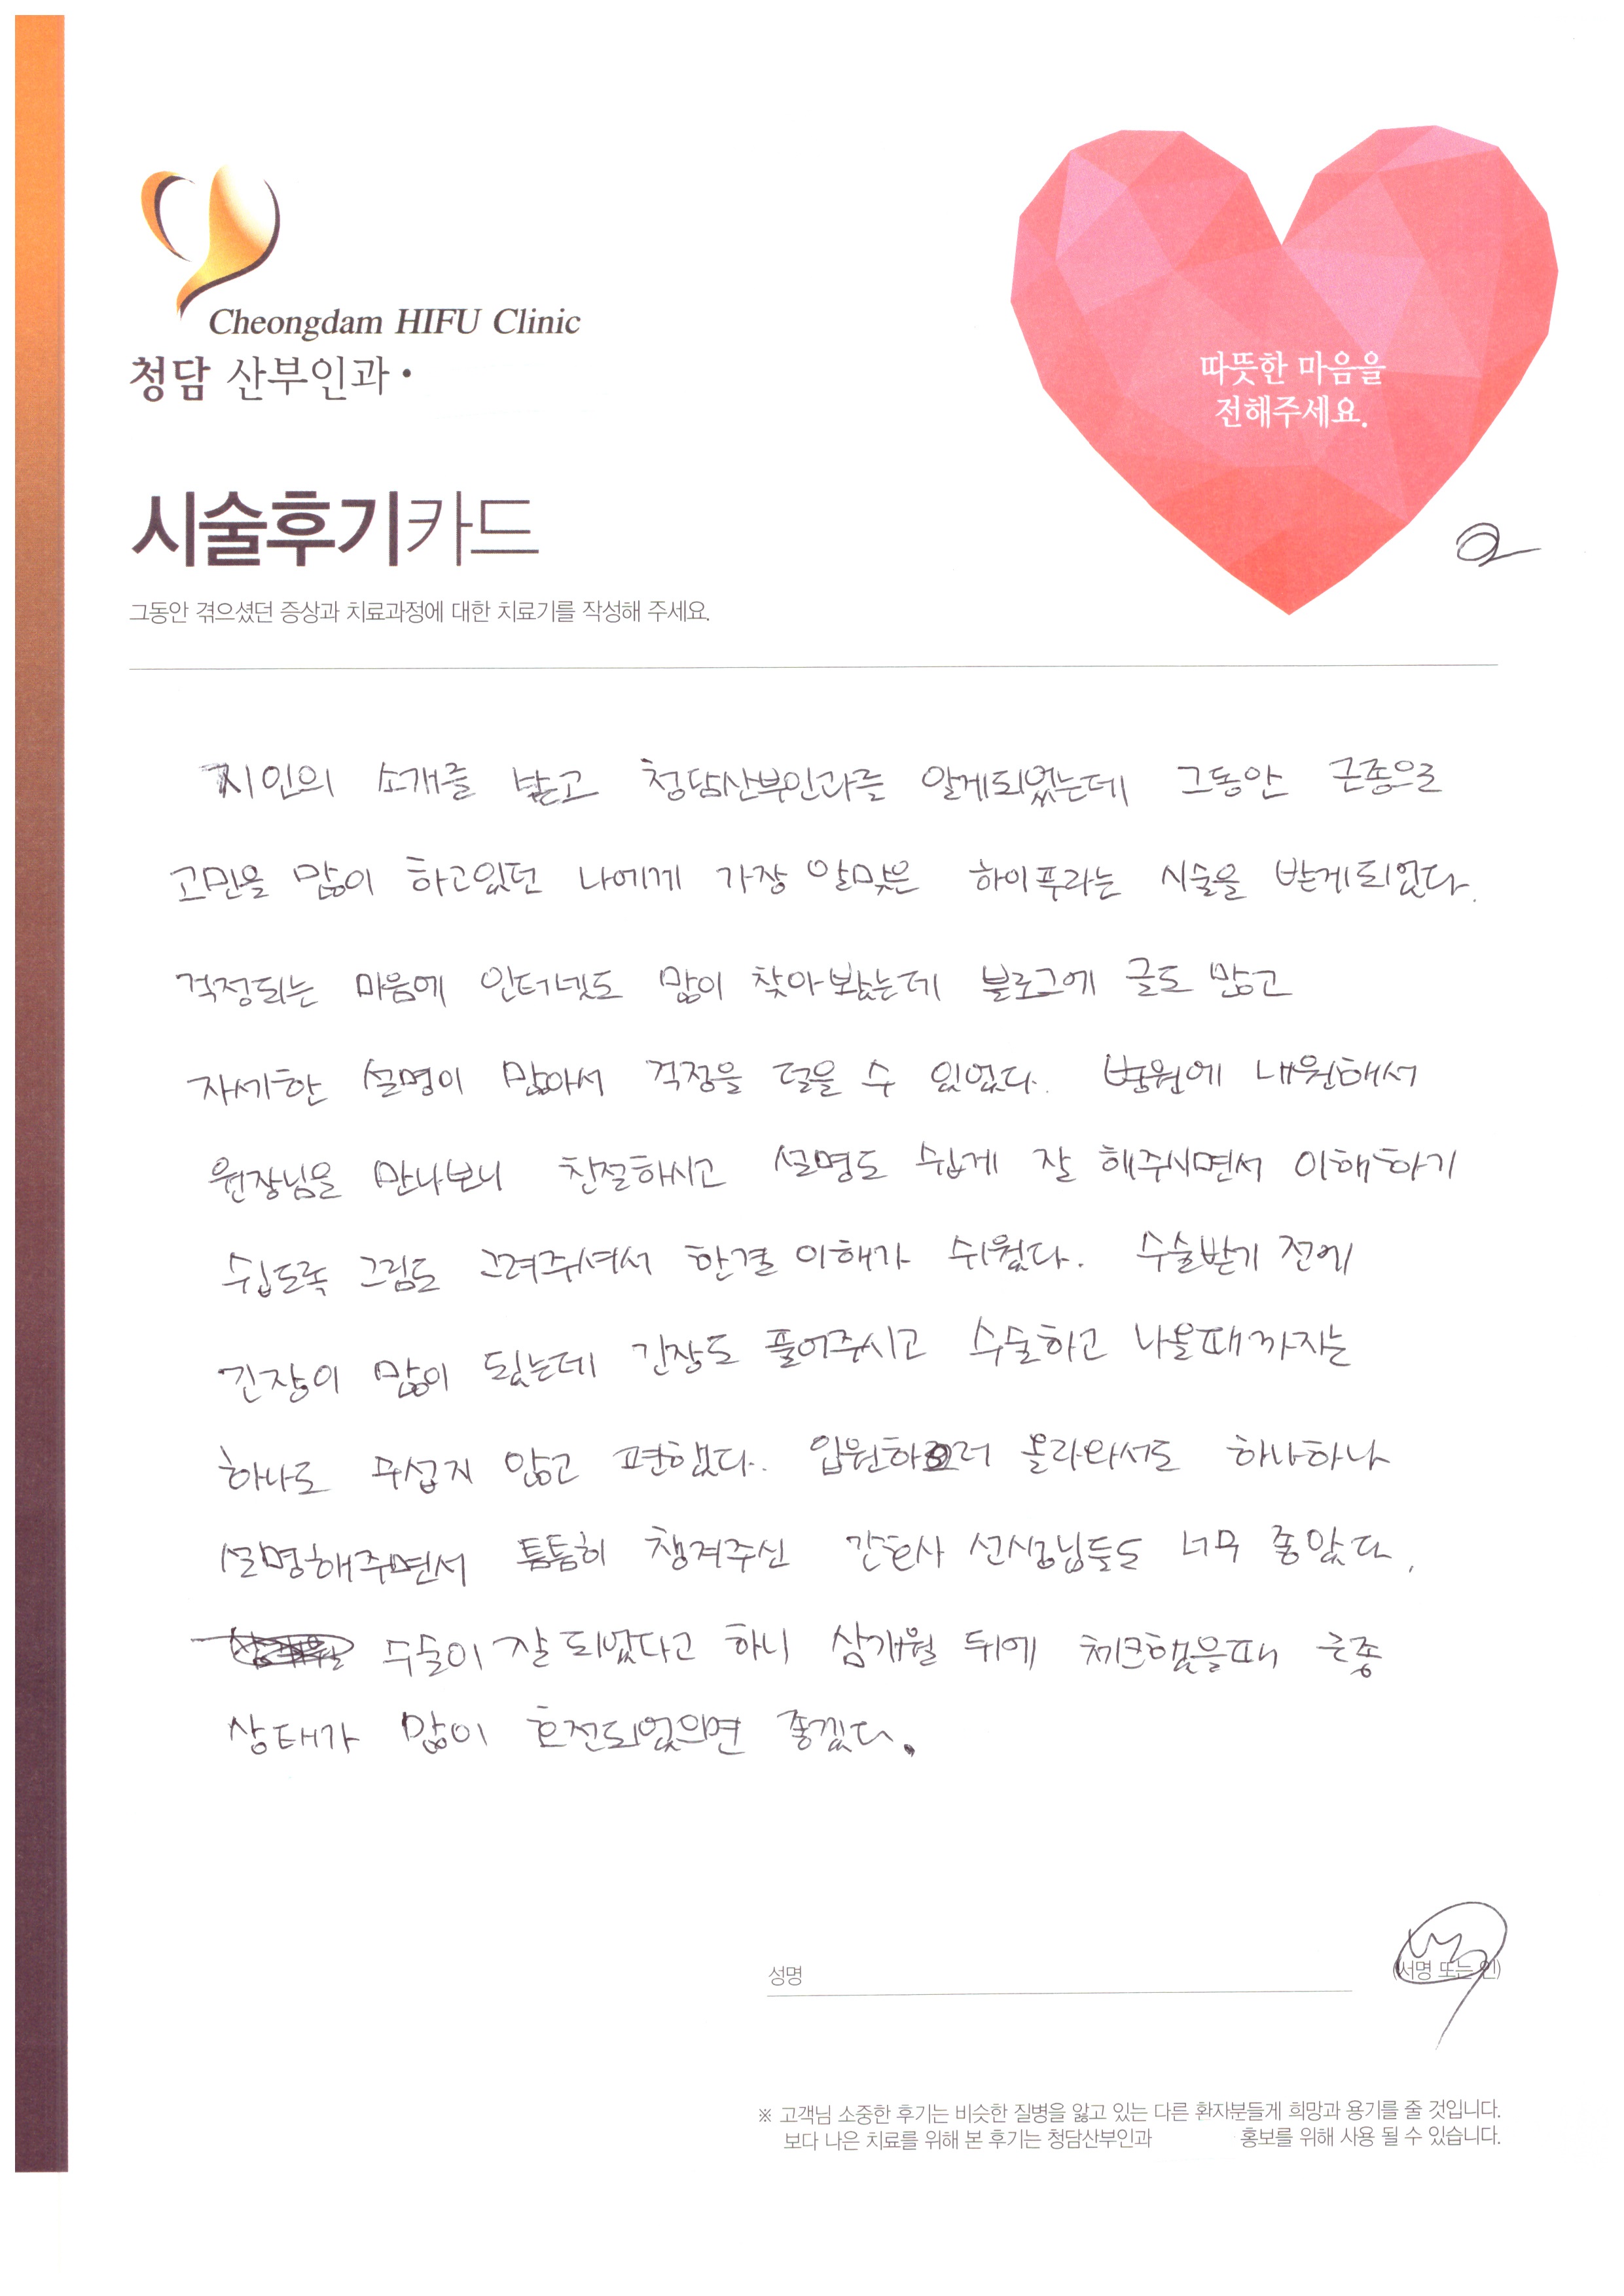 Cheongdam HIFU Clinic
청담 산부인과
따뜻한 마음을
전해주세요.
시술후기카드
그동안 겪으셨던 증상과 치료과정에 대한 치료기를 작성해 주세요.
지인의 소개를 받고 청담산부인과를 알게되었는데 그동안 근종으로
고민을 많이 하고있던 나에게 가장 알맞은 하이푸라는 시술을 받게되었다.
걱정되는 마음에 인터넷도 많이 찾아봤는데 블로그에 글도 많고
자세한 설명이 많아서 걱정을 덜을 수 있었다. 병원에 내원해서
원장님을 만나보니 친절하시고 설명도 쉽게 잘 해주시면서 이해하기
쉽도록 그림도 그려주셔서 한결 이해가 쉬웠다. 수술받기 전에
긴장이 많이 됬는데 긴장도 풀어주시고 수술하고 나올때까지는
하나도 무섭지 않고 편했다. 입원하러 올라와서도 하나하나
설명해주면서 틈틈히 챙겨주신 간호사 선생님들도 너무 좋았다.
수술이 잘 되었다고 하니 삼개월 뒤에 체크했을때 근종
상태가 많이 호전되었으면 좋겠다.
성명
(서명 또는 인)
※ 고객님 소중한 후기는 비슷한 질병을 앓고 있는 다른 환자분들게 희망과 용기를 줄 것입니다.
보다 나은 치료를 위해 본 후기는 청담산부인과 홍보를 위해 사용 될 수 있습니다.